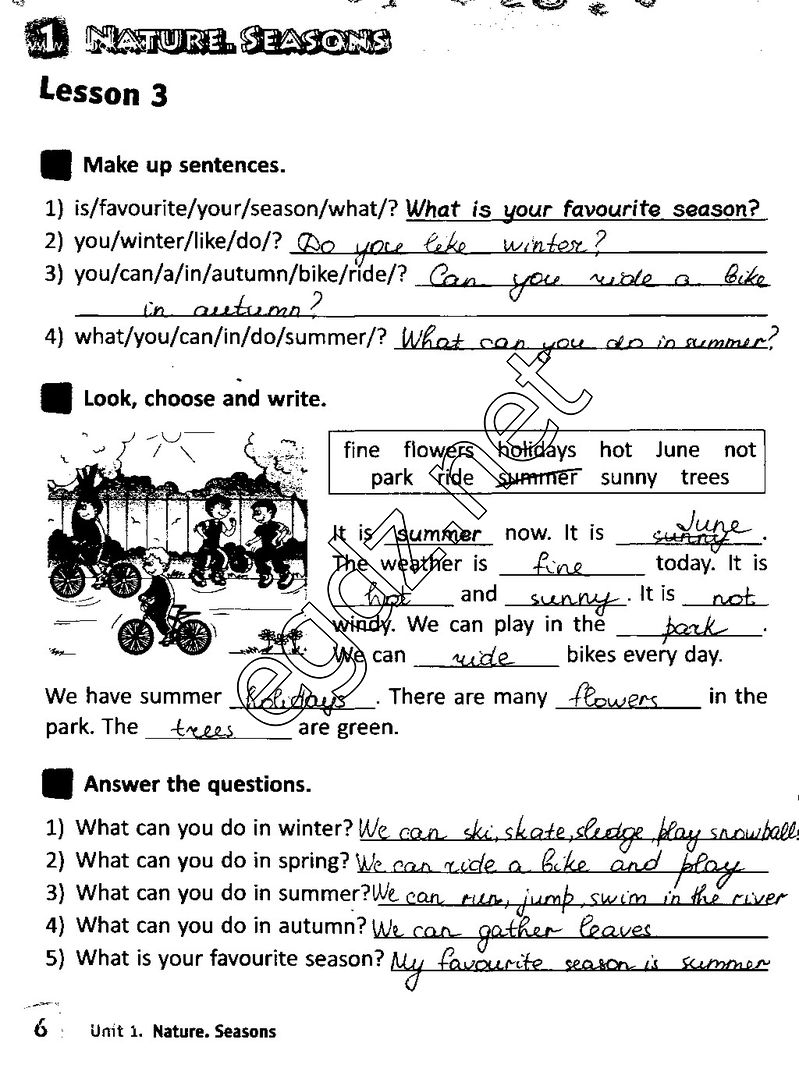 1 NATURE. SEASONS
Lesson 3
Make up sentences.
1) is/favourite/your/season/what/? What is your favourite season?
2) you/winter/like/do/? Do you like winter?
3) you/can/a/in/autumn/bike/ride/? Can you ride a bike
in autumn?
4) what/you/can/in/do/summer/? What can you do in summer?
Look, choose and write.
fine flowers holidays hot June not
park ride summer sunny trees
It is summer now. It is sunny June.
The weather is fine today. It is
hot and sunny. It is not
windy. We can play in the park.
We can ride bikes every day.
We have summer holidays. There are many flowers in the
park. The trees are green.
Answer the questions.
1) What can you do in winter? We can ski, skate, sledge, play snowballs
2) What can you do in spring? We can ride a bike and play
3) What can you do in summer? We can run, jump, swim in the river
4) What can you do in autumn? We can gather leaves
5) What is your favourite season? My favourite season is summer
6 Unit 1. Nature. Seasons
egdz.net